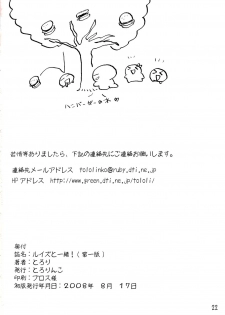 ハンバーガーの木の
苦情等ありましたら、下記の連絡先にご連絡お願いします。
連絡先メールアドレス　tololinko@ruby.dti.ne.jp
HPアドレス　http://www.green.dti.ne.jp/tololi/
奥付
誌名：ルイズと一緒！（第一版）
著者：とろり
発行：とろりんこ
印刷：プロス様
初版発行年月日：2008年　8月　17日
22